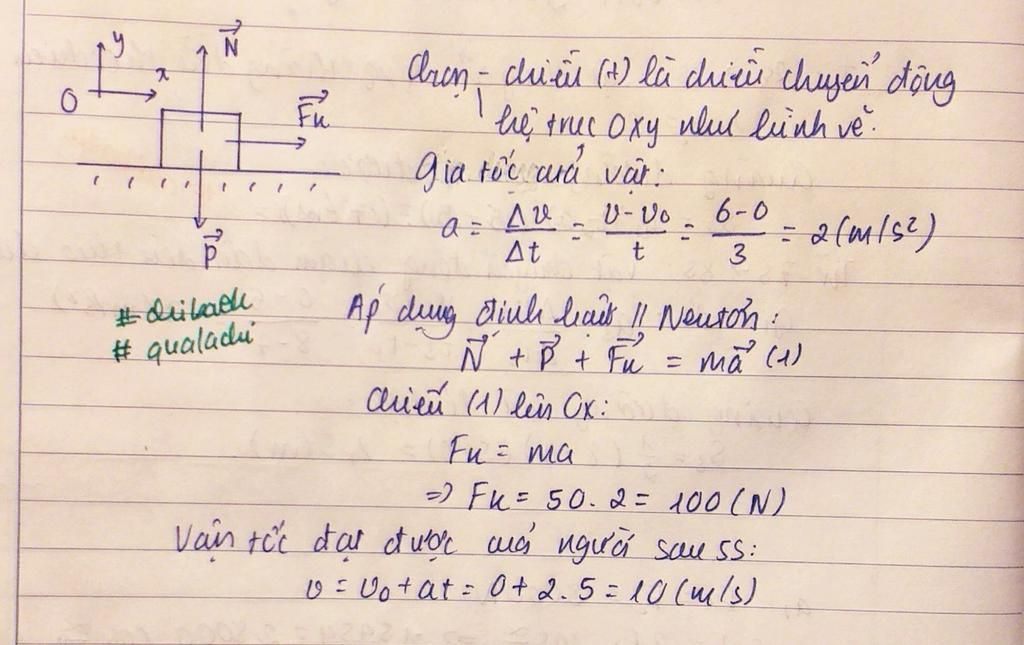 y
N⃗
x
O
F⃗k
P⃗
Chọn - chiều (+) là chiều chuyển động
hệ trục Oxy như hình vẽ.
Gia tốc của vật:
a = Δv/Δt = v-v₀/t = 6-0/3 = 2 (m/s²)
Áp dụng định luật II Newton:
N⃗ + P⃗ + F⃗k = ma⃗ (1)
Chiếu (1) lên Ox:
Fk = ma
=> Fk = 50.2 = 100 (N)
Vận tốc đạt được của người sau 5s:
v = v₀ + at = 0 + 2.5 = 10 (m/s)
#
# qualachi